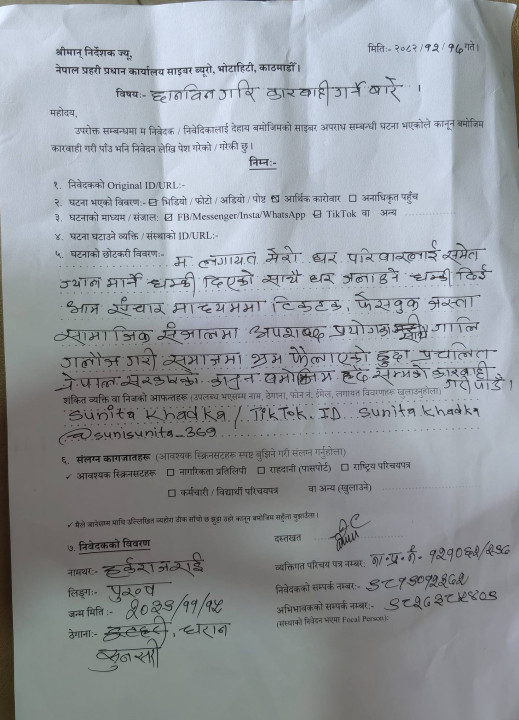 श्रीमान् निर्देशक ज्यू,
मिति:- २०८२/१२/१६ गते।
नेपाल प्रहरी प्रधान कार्यालय साइबर ब्यूरो, भोटाहिटी, काठमाडौं।
विषय:- छानविन गरि कारवाही गर्ने बारे ।
महोदय,
उपरोक्त सम्बन्धमा म निवेदक / निवेदिकालाई देहाय बमोजिमको साइबर अपराध सम्बन्धी घटना भएकोले कानून बमोजिम
कारवाही गरी पाउँ भनि निवेदन लेखि पेश गरेको / गरेकी छु।
निम्न:-
१. निवेदकको Original ID/URL:-
२. घटना भएको विवरण:- ☑ भिडियो / फोटो / अडियो / पोष्ट ☑ आर्थिक कारोवार ☐ अनाधिकृत पहुँच
३. घटनाको माध्यम / संजाल: ☑ FB/Messenger/Insta/WhatsApp ☑ TikTok वा अन्य
४. घटना घटाउने व्यक्ति / संस्थाको ID/URL:-
५. घटनाको छोटकरी विवरण:- म लगायत मेरो घर परिवारलाई समेत
ज्यान मार्ने धम्की दिएको साथै घर जलाउने धम्की दिई
आम संचार माध्यममा टिकटक, फेसवुक जस्ता
सामाजिक संजालमा अपशब्द प्रयोग साथै गालि
गलौज गरी समाजमा भ्रम फैलाएको हुदा प्रचलित
नेपाल सरकारको कानुन बमोजिम हदै सम्मको कारवाही
गरी पाउँ ।
शंकित व्यक्ति वा निजको आफन्तहरू (उपलब्ध भएसम्म नाम, ठेगाना, फोन नं, ईमेल, लगायत विवरणहरू खुलाउनुहोला)
Sunita Khadka / TikTok. ID. Sunita Khadka
@sunisunita_369
६. संलग्न कागजातहरू (आवश्यक स्क्रिनसटहरू स्पष्ट बुझिने गरी संलग्न गर्नुहोला)
✓ आवश्यक स्क्रिनसटहरू ☐ नागरिकता प्रतिलिपी ☐ राहदानी (पासपोर्ट) ☐ राष्ट्रिय परिचयपत्र
☐ कर्मचारी / विद्यार्थी परिचयपत्र वा अन्य (खुलाउने)
✓ मैले जानेसम्म माथि उल्लिखित व्यहोरा ठीक साँचो छ झुठ्ठा ठहरे कानून बमोजिम सहुँला बुझाउँला।
७. निवेदकको विवरण
दस्तखत
नामथर:- हर्कराज राई
व्यक्तिगत परिचय पत्र नम्बर:- ना.प्र.नं.
लिङ्ग:- पुरुष
निवेदकको सम्पर्क नम्बर:-
जन्म मिति:-
अभिभावकको सम्पर्क नम्बर:-
(संस्थाको निवेदन भएमा Focal Person):
ठेगाना:- धरान
सुनसरी